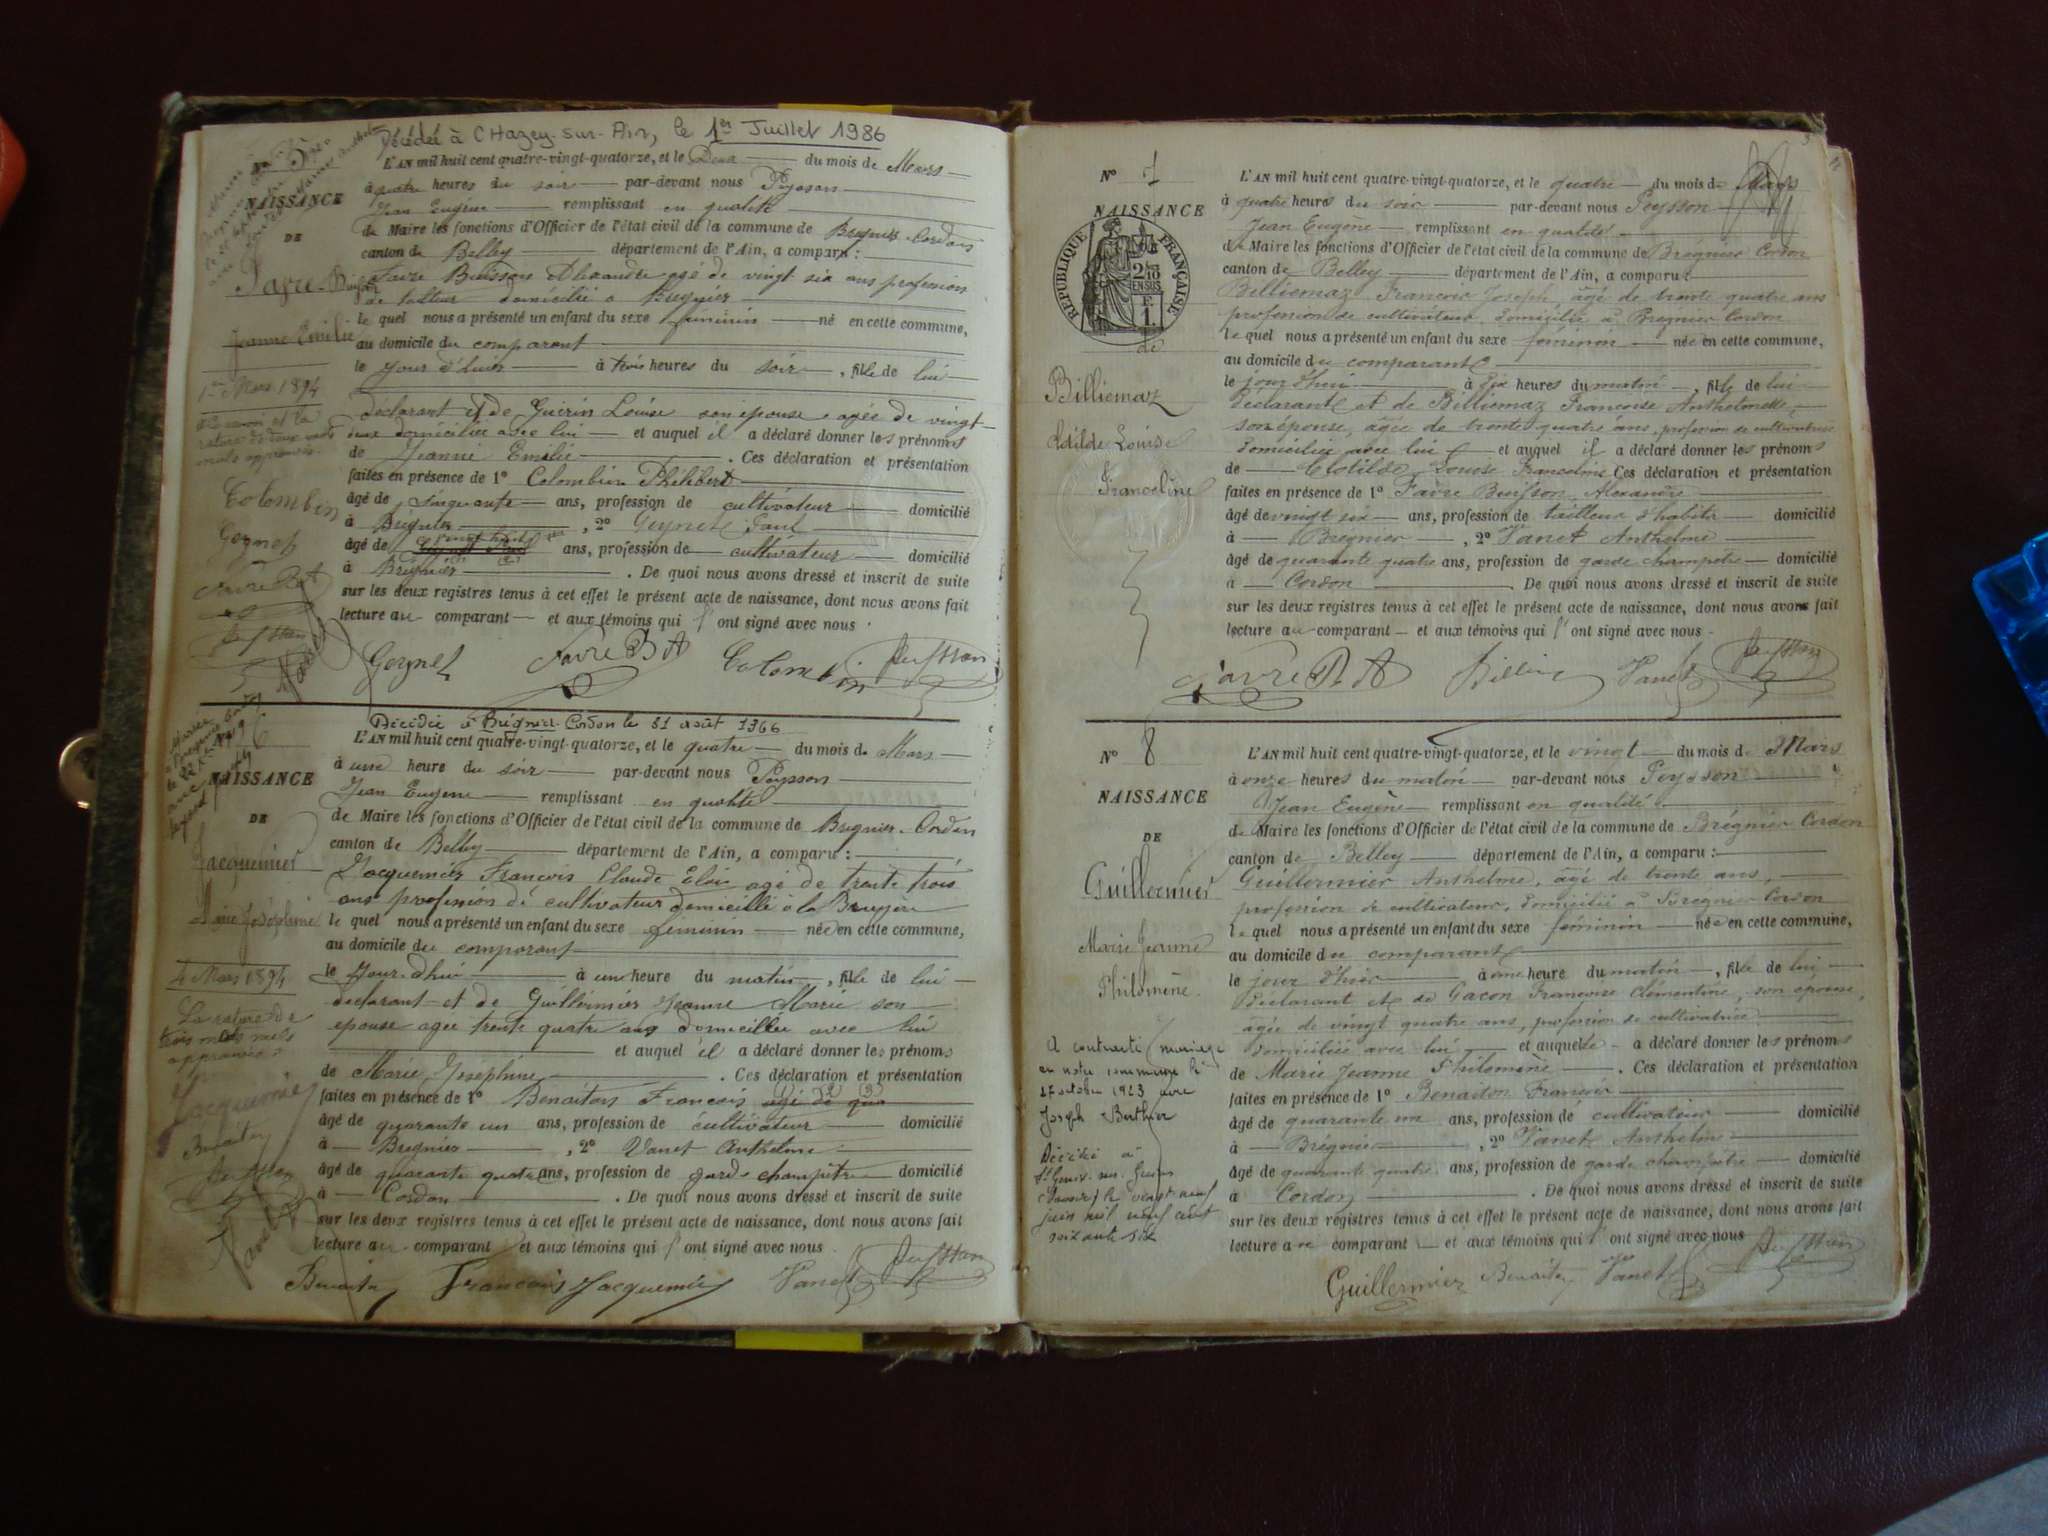 Décédée à CHazey-sur-Ain, le 1er Juillet 1986
N° 5
NAISSANCE
DE
Favre-Buisson
Jeanne Emilie
1er Mars 1894
Colombin
Geynet
Favre B A
Peysson
L'AN mil huit cent quatre-vingt-quatorze, et le Deux du mois de Mars
à quatre heures du soir par-devant nous Peysson
Jean Eugène remplissant en qualité
de Maire les fonctions d'Officier de l'état civil de la commune de Bregnier-Cordon
canton de Belley département de l'Ain, a comparu :
Favre Buisson Alexandre agé de vingt six ans profession
de tailleur domicilié à Bregnier
le quel nous a présenté un enfant du sexe féminin né en cette commune,
au domicile du comparant
le jour d'hier à trois heures du soir, fille de lui
déclarant et de Guérin Louise son épouse agée de vingt
deux domiciliée avec lui et auquel il a déclaré donner les prénoms
de Jeanne Emilie. Ces déclaration et présentation
faites en présence de 1° Colombin Philibert
âgé de cinquante ans, profession de cultivateur domicilié
à Bregnier, 2° Geynet Paul
âgé de vingt huit ans, profession de cultivateur domicilié
à Bregnier. De quoi nous avons dressé et inscrit de suite
sur les deux registres tenus à cet effet le présent acte de naissance, dont nous avons fait
lecture au comparant et aux témoins qui l'ont signé avec nous.
Geynet Favre B A Colombin Peysson
Décédée à Brégnier-Cordon le 31 août 1966
N° 6
NAISSANCE
DE
Jacquemier
Marie Joséphine
4 Mars 1894
La rature de
trois mots nuls
approuvée
Jacquemier
Benaiton
Peysson
Vanet
L'AN mil huit cent quatre-vingt-quatorze, et le quatre du mois de Mars
à une heure du soir par-devant nous Peysson
Jean Eugene remplissant en qualité
de Maire les fonctions d'Officier de l'état civil de la commune de Bregnier-Cordon
canton de Belley département de l'Ain, a comparu :
Jacquemier François Claude Eloi agé de trente trois
ans profession de cultivateur domicilié à la Bruyère
le quel nous a présenté un enfant du sexe féminin née en cette commune,
au domicile du comparant
le jour-d'hui à une heure du matin, fille de lui
déclarant et de Guillermier Jeanne Marie son
epouse agee trente quatre ans domiciliée avec lui
et auquel il a déclaré donner les prénoms
de Marie Joséphine. Ces déclaration et présentation
faites en présence de 1° Benaiton Francois agé de qua
âgé de quarante un ans, profession de cultivateur domicilié
à Bregnier, 2° Vanet Anthelme
âgé de quarante quatre ans, profession de garde-champêtre domicilié
à Cordon. De quoi nous avons dressé et inscrit de suite
sur les deux registres tenus à cet effet le présent acte de naissance, dont nous avons fait
lecture au comparant et aux témoins qui l'ont signé avec nous.
Benaiton François Jacquemier Vanet Peysson
N° 7
NAISSANCE
RÉPUBLIQUE FRANÇAISE
2/10 EN SUS
F. 1
de
Billiemaz
Clotilde Louise
Franceline
L'AN mil huit cent quatre-vingt-quatorze, et le quatre du mois de Mars
à quatre heures du soir par-devant nous Peysson
Jean Eugène remplissant en qualité
de Maire les fonctions d'Officier de l'état civil de la commune de Brégnier Cordon
canton de Belley département de l'Ain, a comparu
Billiemaz François Joseph, âgé de trente quatre ans
profession de cultivateur domicilié à Bregnier Cordon
le quel nous a présenté un enfant du sexe féminin née en cette commune,
au domicile du comparant
le jour d'hui à dix heures du matin, fille de lui
déclarant et de Billiemaz Françoise Anthelmette,
son épouse, âgée de trente quatre ans, profession de cultivatrice
domiciliée avec lui et auquel il a déclaré donner les prénoms
de Clotilde Louise Franceline Ces déclaration et présentation
faites en présence de 1° Favre Buisson Alexandre
âgé de vingt six ans, profession de tailleur d'habits domicilié
à Bregnier, 2° Vanet Anthelme
âgé de quarante quatre ans, profession de garde champetre domicilié
à Cordon. De quoi nous avons dressé et inscrit de suite
sur les deux registres tenus à cet effet le présent acte de naissance, dont nous avons fait
lecture au comparant et aux témoins qui l'ont signé avec nous.
Favre B A Vanet Peysson
N° 8
NAISSANCE
DE
Guillermier
Marie Jeanne
Philomène
A contracté mariage
en notre commune le
27 octobre 1923 avec
Joseph Berthier
Décédée à
St Genix-sur-Guiers
(Savoie) le vingt neuf
juin mil neuf cent
soixante six
L'AN mil huit cent quatre-vingt-quatorze, et le vingt du mois de Mars
à onze heures du matin par-devant nous Peysson
Jean Eugène remplissant en qualité
de Maire les fonctions d'Officier de l'état civil de la commune de Brégnier Cordon
canton de Belley département de l'Ain, a comparu :
Guillermier Anthelme, âgé de trente ans,
profession de cultivateur, domicilié à Bregnier Cordon
le quel nous a présenté un enfant du sexe féminin née en cette commune,
au domicile du comparant
le jour d'hier à une heure du matin, fille de lui
déclarant et de Gacon Françoise Clémentine, son epouse,
âgée de vingt quatre ans, profession de cultivatrice
domiciliée avec lui et auquel a déclaré donner les prénoms
de Marie Jeanne Philomène. Ces déclaration et présentation
faites en présence de 1° Benaiton François
âgé de quarante un ans, profession de cultivateur domicilié
à Brégnier, 2° Vanet Anthelme
âgé de quarante quatre ans, profession de garde champêtre domicilié
à Cordon. De quoi nous avons dressé et inscrit de suite
sur les deux registres tenus à cet effet le présent acte de naissance, dont nous avons fait
lecture au comparant et aux témoins qui l'ont signé avec nous
Guillermier Benaiton Vanet Peysson